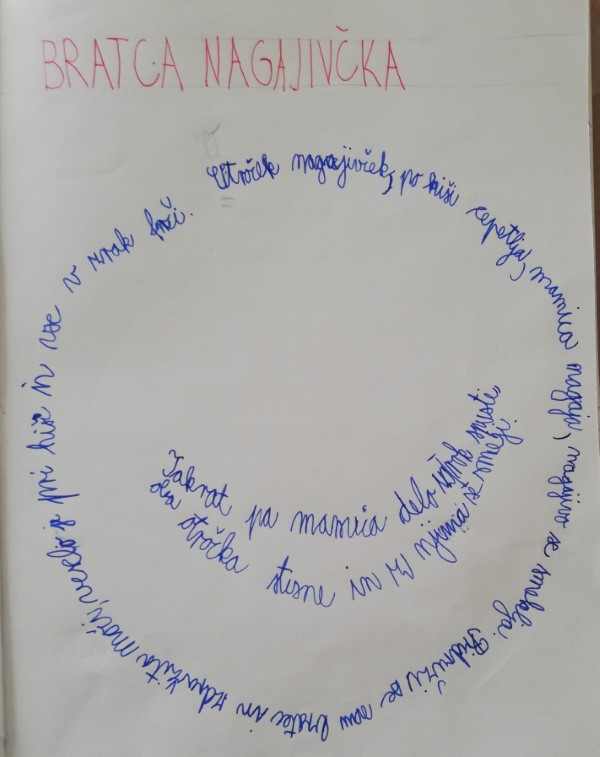 BRATCA NAGAJIVČKA
Otroček nagajivček, po hiši cepetlja, mamica nagaja, nagajivo se smehlja. Pridruži se mu bratec in združita moči, veselo je pri hiši in vse v zrak frči.
Takrat pa mamica delo izpusti,
oba otročka stisne in z njima se smeji.